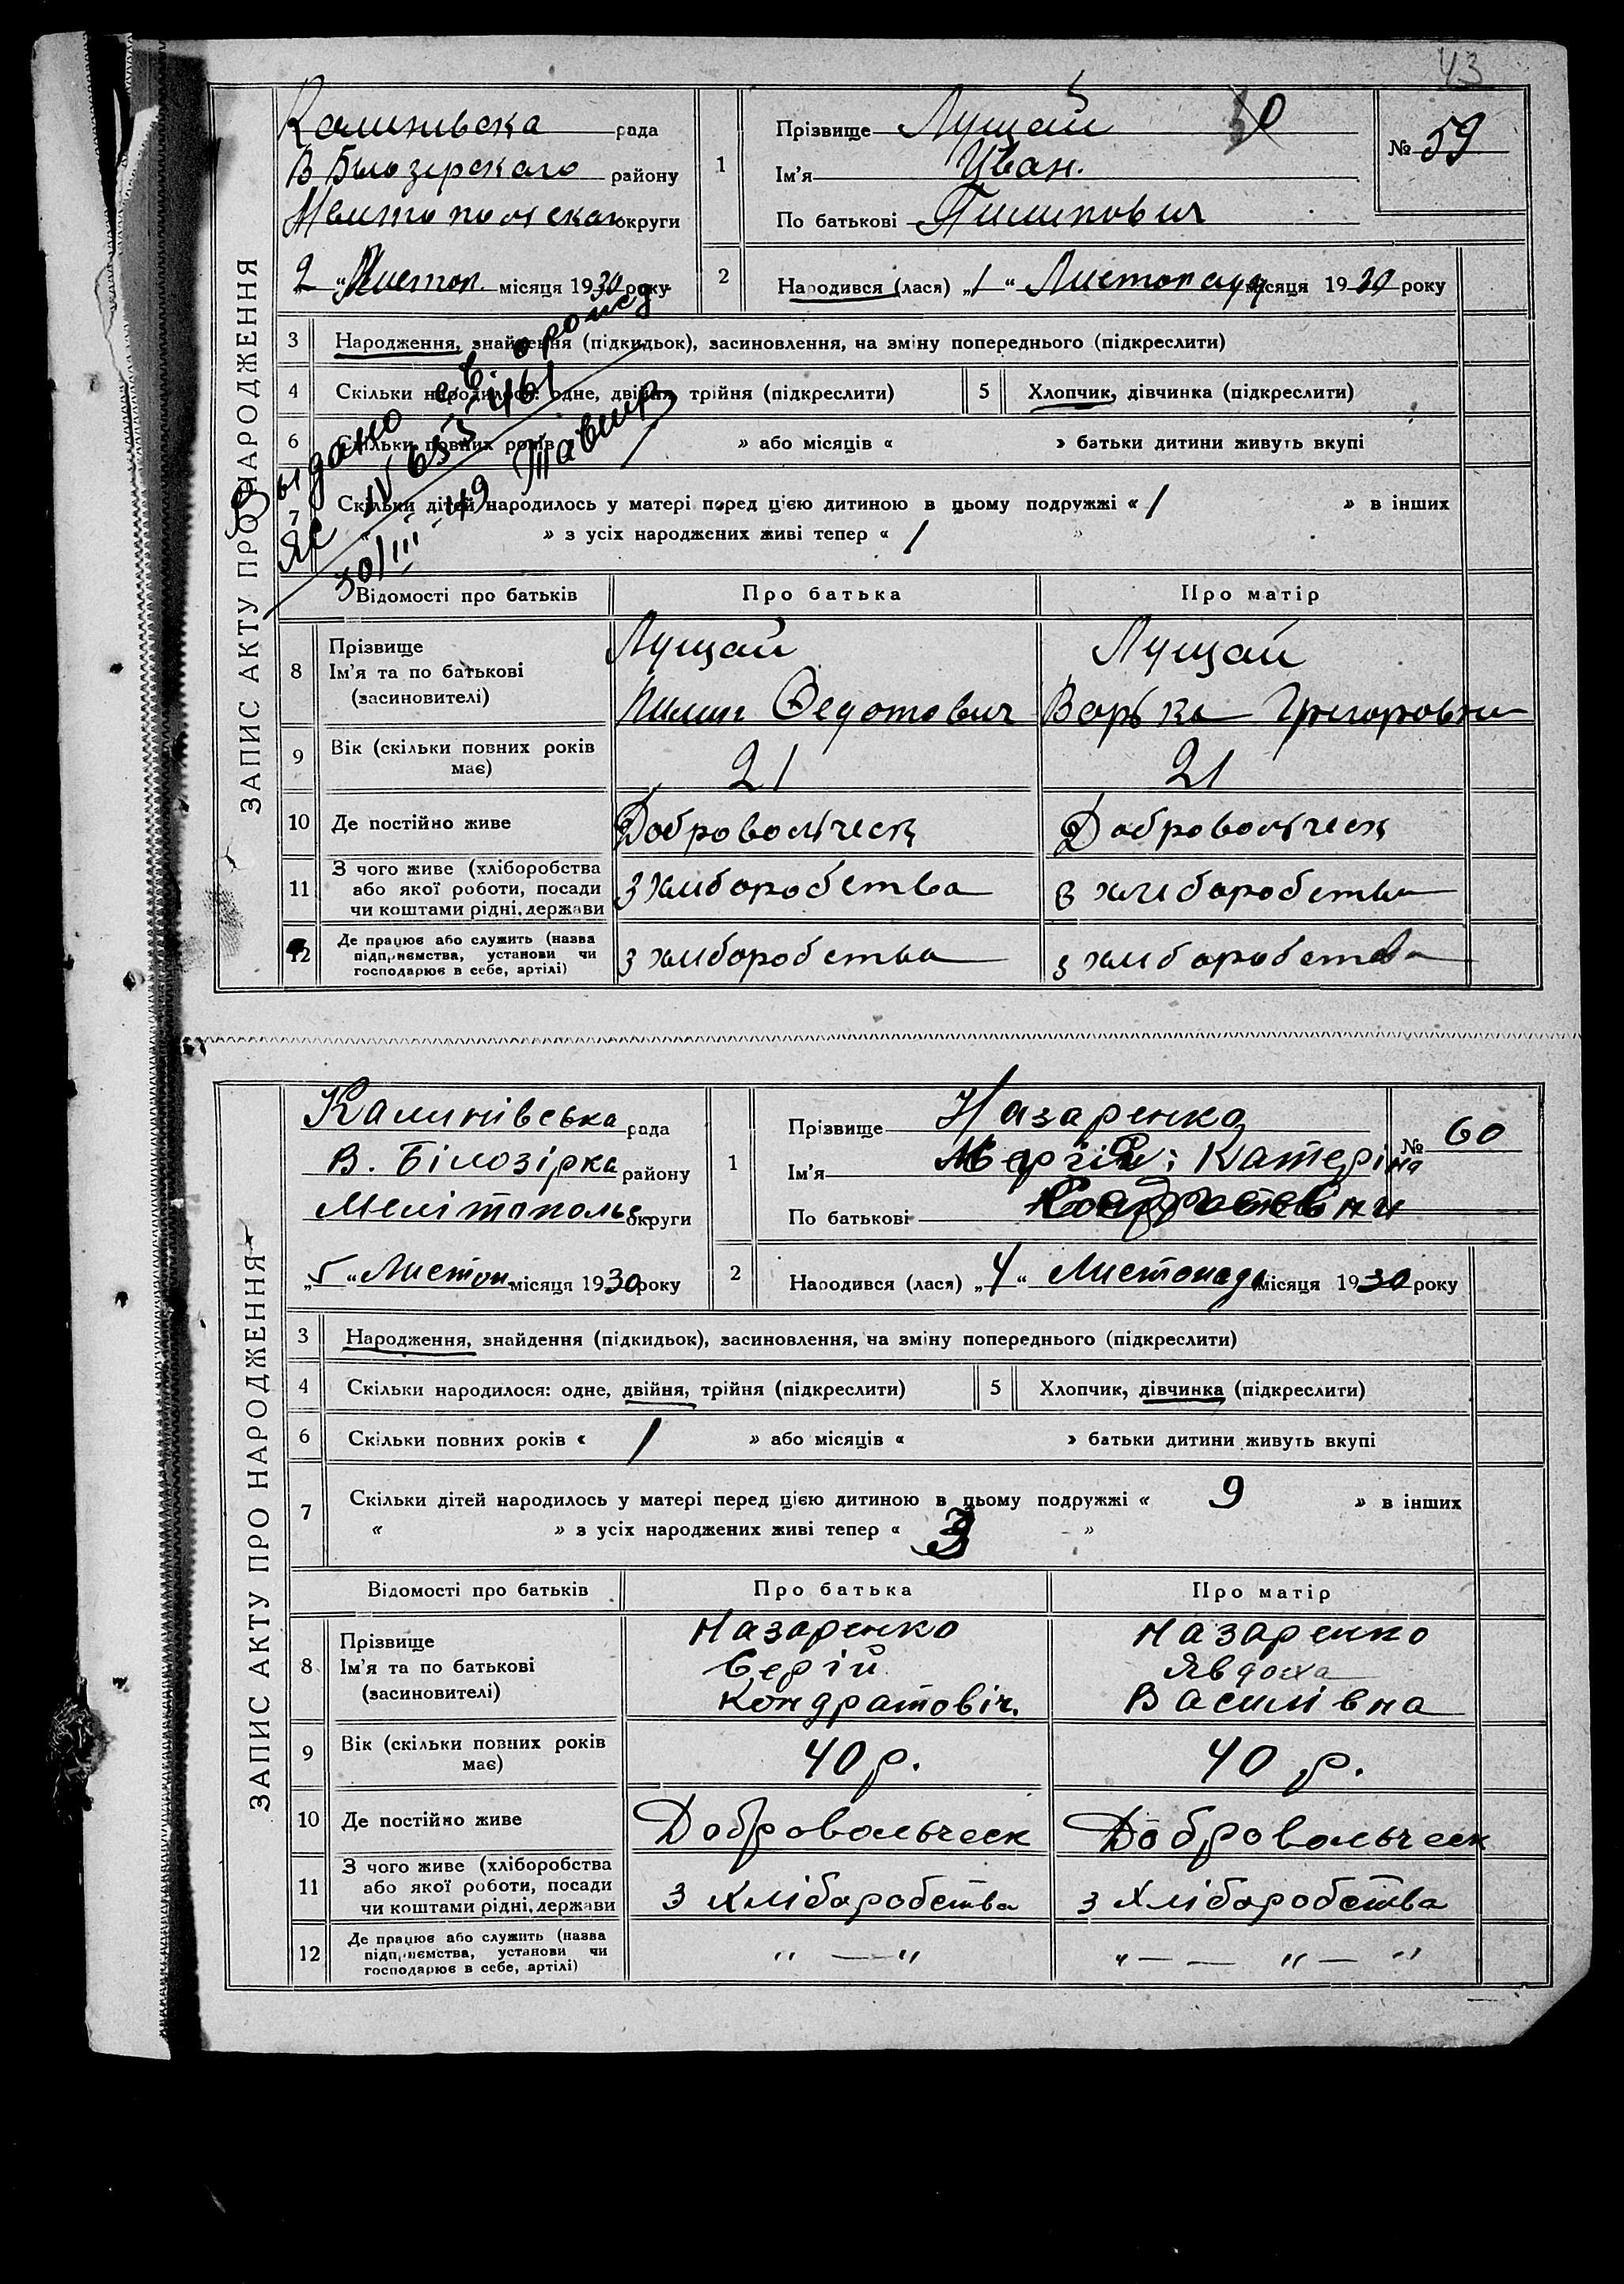 43
ЗАПИС АКТУ ПРО НАРОДЖЕННЯ
Калинивска рада
В Билозерскаго району
округи
„2“ Листоп. місяця 1930 року
1
Прізвище Лущай
Ім'я Иван.
По батькові Пилипович
№ 59
2
Народився (лася) „1“ Листопада місяця 1930 року
3 Народження, знайдення (підкидьок), засиновлення, на зміну попереднього (підкреслити)
4 Скільки народилося: одне, двійня, трійня (підкреслити)
5 Хлопчик, дівчинка (підкреслити)
6 Скільки повних років » або місяців « » батьки дитини живуть вкупі
7 Скільки дітей народилось у матері перед цією дитиною в цьому подружжі « 1 » в інших
» з усіх народжених живі тепер « 1 »
Выдано св. о рожд
30/III-49
Відомості про батьків Про батька Про матір
8 Прізвище
Ім'я та по батькові
(засиновителі)
Лущай
Пилип Федотович
Лущай
Варька Григоровна
9 Вік (скільки повних років має) 21 21
10 Де постійно живе Добровольческ Добровольческ
11 З чого живе (хліборобства
або якої роботи, посади
чи коштами рідні, держави
з хлиборобства з хлиборобства
12 Де працює або служить (назва
підприємства, установи чи
господарює в себе, артілі)
з хлиборобства з хлиборобства
ЗАПИС АКТУ ПРО НАРОДЖЕННЯ
Калинівська рада
В. Білозірка району
Мелітопольс округи
„5“ Листоп місяця 1930 року
1
Прізвище Назаренко
Ім'я Катеріна
По батькові
№ 60
2
Народився (лася) „4“ Листопада місяця 1930 року
3 Народження, знайдення (підкидьок), засиновлення, на зміну попереднього (підкреслити)
4 Скільки народилося: одне, двійня, трійня (підкреслити)
5 Хлопчик, дівчинка (підкреслити)
6 Скільки повних років « / » або місяців « » батьки дитини живуть вкупі
7 Скільки дітей народилось у матері перед цією дитиною в цьому подружжі « 9 » в інших
« » з усіх народжених живі тепер « 3 »
Відомості про батьків Про батька Про матір
8 Прізвище
Ім'я та по батькові
(засиновителі)
Назаренко
Сергій
Кондратовіч.
Назаренко
Явдоха
Василівна
9 Вік (скільки повних років має) 40 р. 40 р.
10 Де постійно живе Добровольческ Добровольческ
11 З чого живе (хліборобства
або якої роботи, посади
чи коштами рідні, держави
з хліборобства з хліборобства
12 Де працює або служить (назва
підприємства, установи чи
господарює в себе, артілі)
" — " " — — " — "